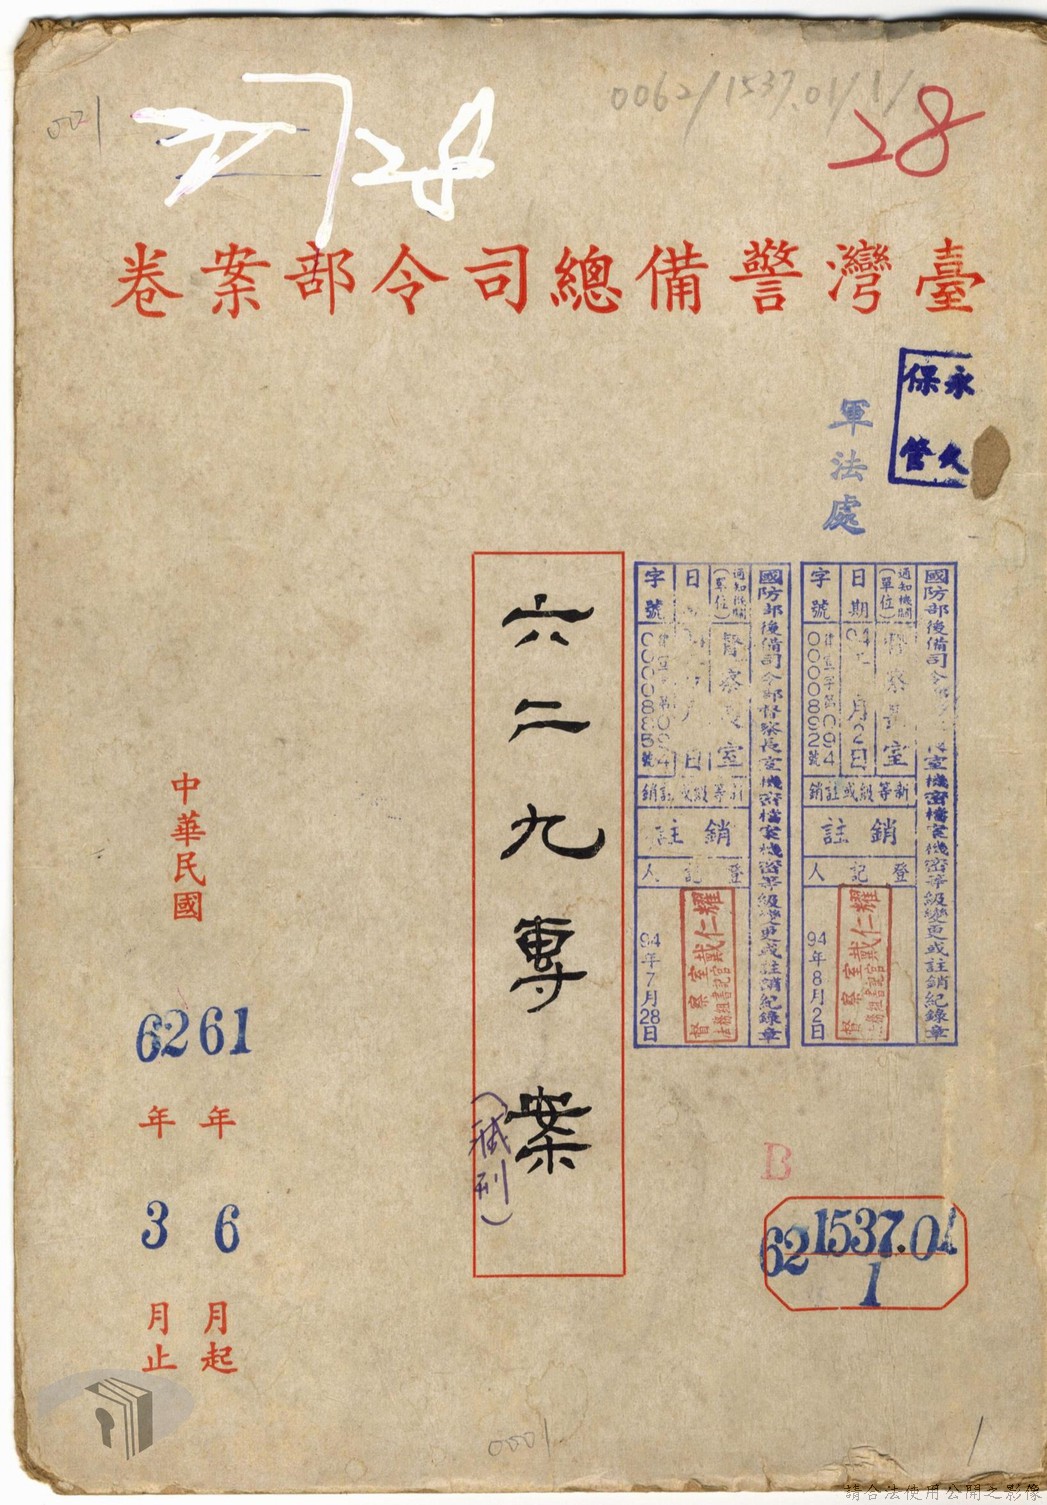 001
0062/1537.01/1/
28
28
臺灣警備總司令部案卷
永久保管
軍法處
國防部後備司令部督察長室機密檔案機密等級變更或註銷紀錄章
通知機關(單位)
督察長室
日期
月2日
字號
0000892號
新等級或註銷
註銷
登記人
督察室戴仁耀
94年8月2日
國防部後備司令部督察長室機密檔案機密等級變更或註銷紀錄章
通知機關(單位)
督察長室
日
字號
0000885號
註銷
登記人
督察室戴仁耀
法務組書記官
94年7月28日
六二九專案
(減刑)
中華民國
61年6月起
62年3月止
B
62 1537.01
1
0001
1
請合法使用公開之影像